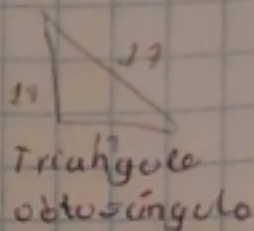 17
Triahgulo
obtusángulo